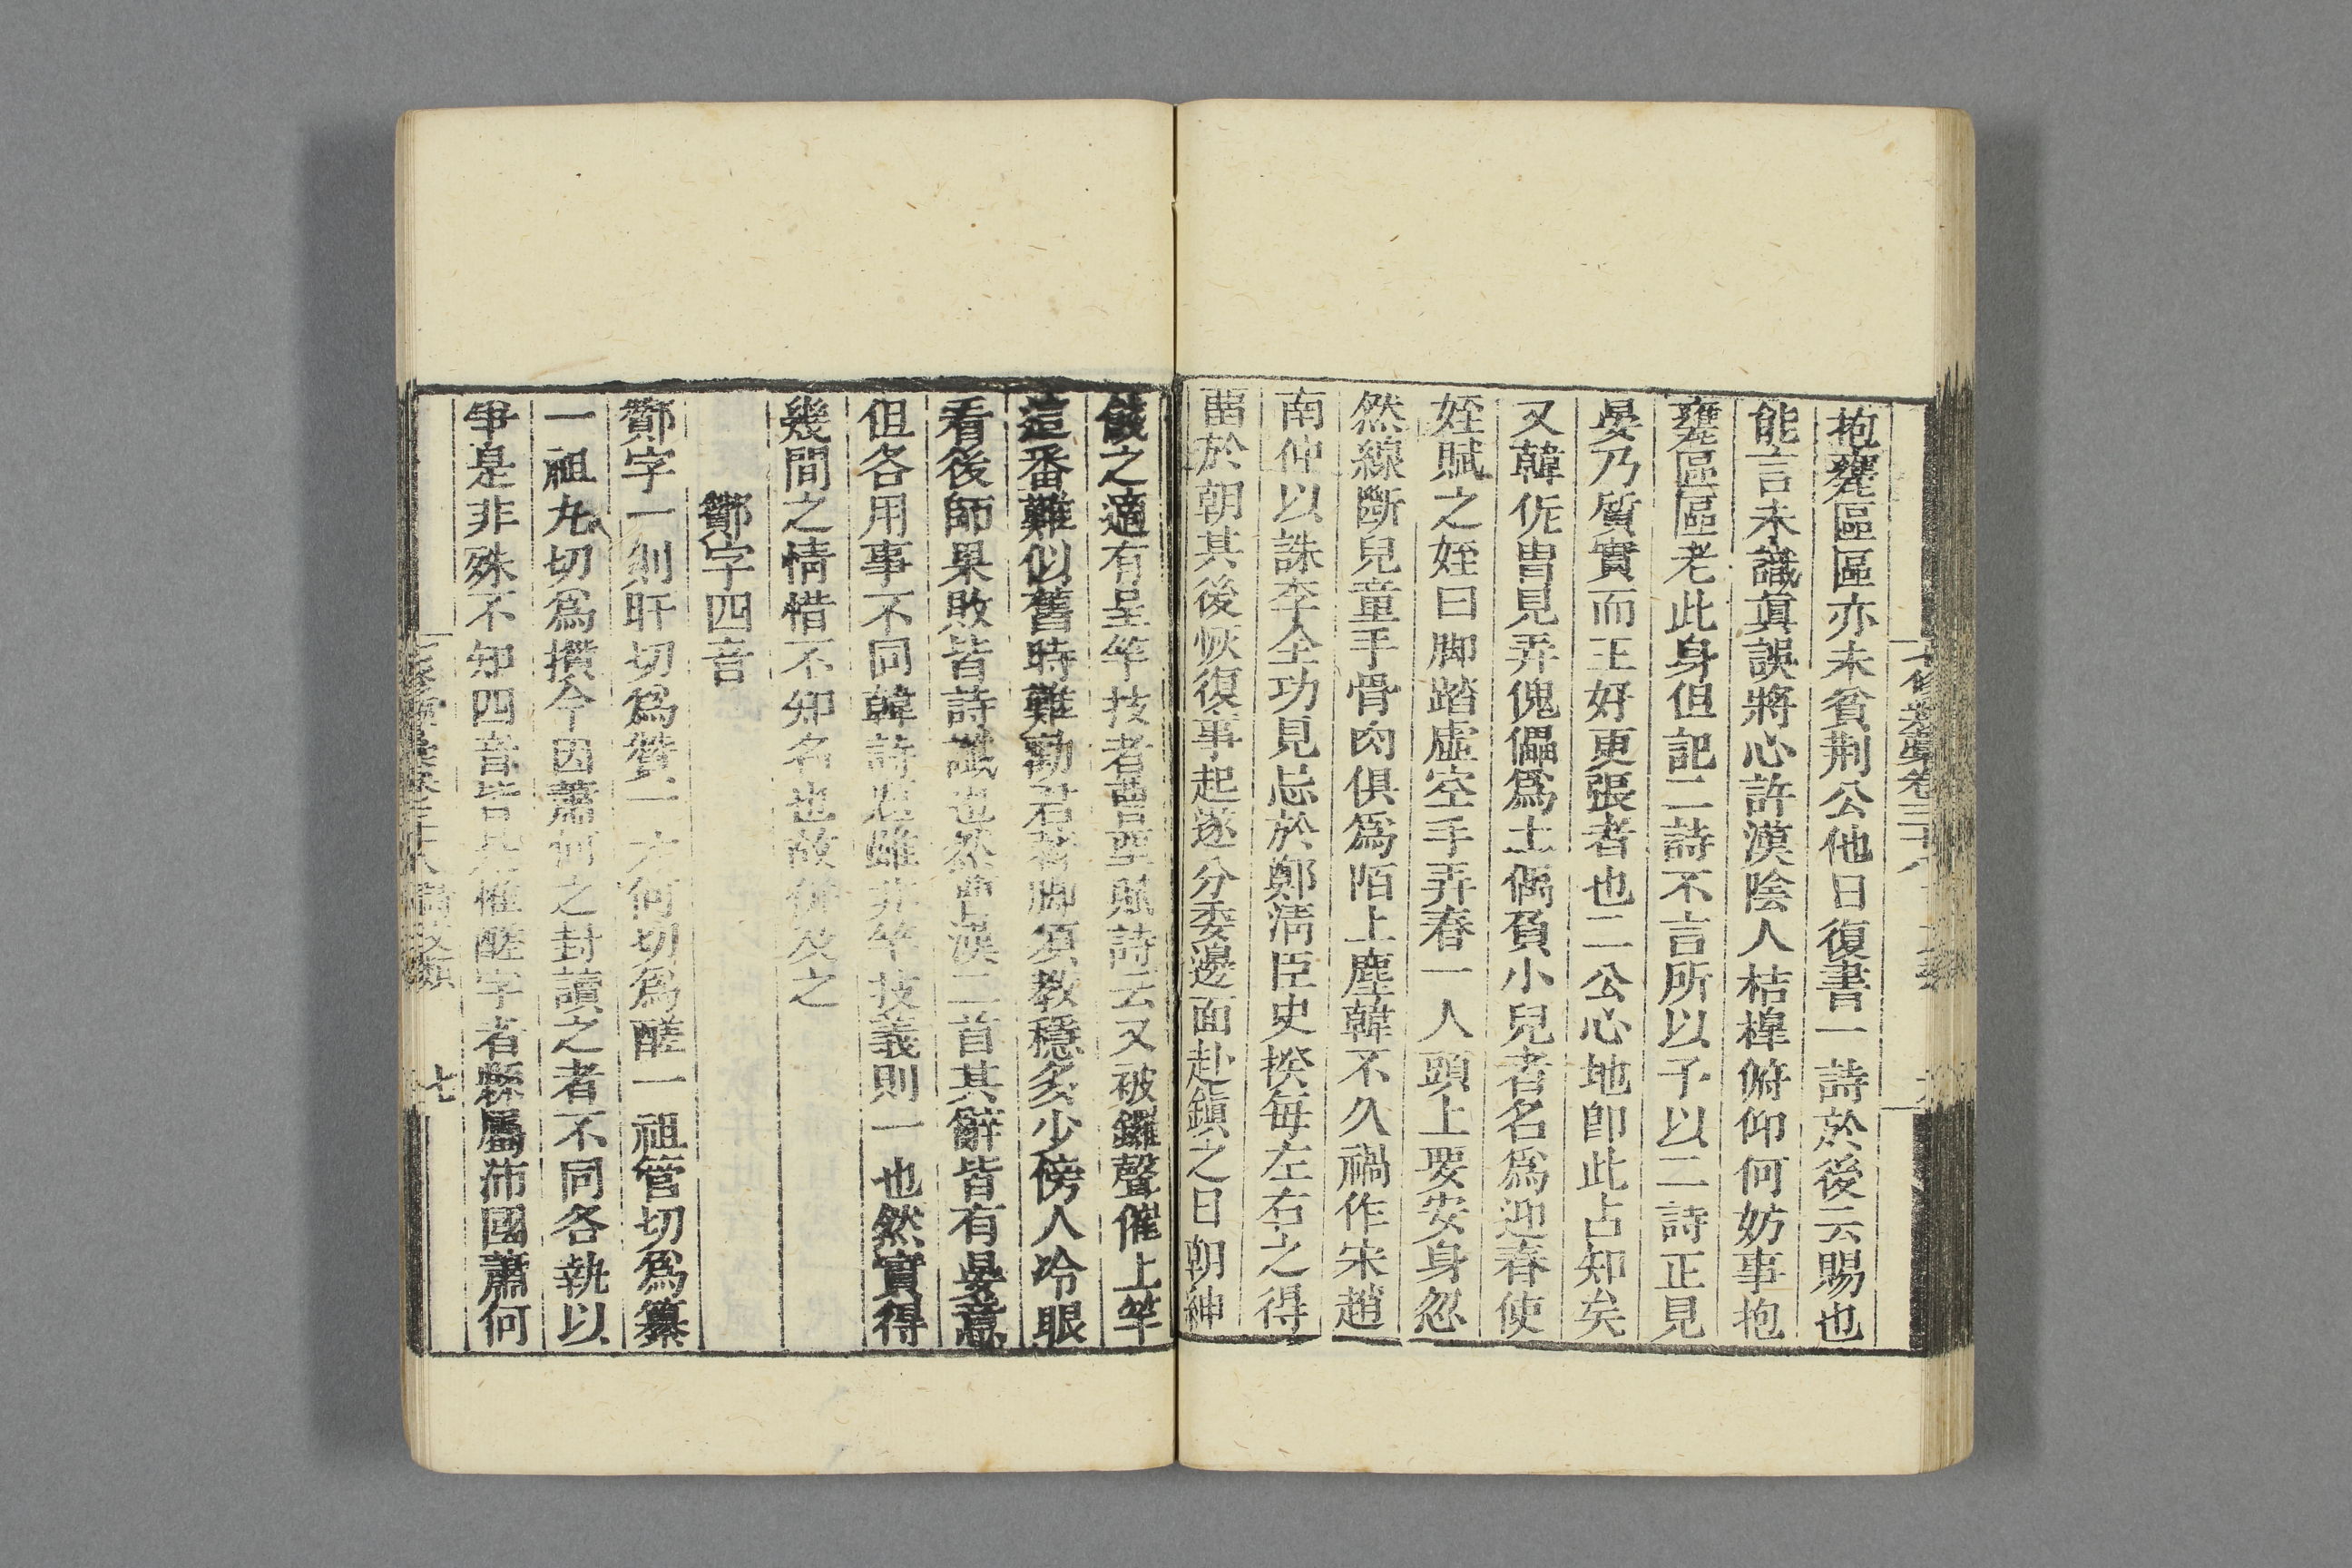 抱甕區區亦未貧荆公他日復書一詩於後云賜也
能言未識眞誤將心許漢陰人桔橰俯仰何妨事抱
甕區區老此身但記二詩不言所以予以二詩正見
晏乃質實而王好更張者也二公心地卽此占知矣
又韓侂冑見弄傀儡爲土偶負小兒者名爲迎春使
姪賦之姪曰脚踏虛空手弄春一人頭上要安身忽
然線斷兒童手骨肉俱爲陌上塵韓不久禍作宋趙
南仲以誅李全功見忌於鄭淸臣史揆每左右之得
畱於朝其後恢復事起遂分委邊面赴鎭之日朝紳
餞之適有呈竿技者曹賦詩云又被鑼聲催上竿
這番難似舊時難勸君著脚須教穩多少傍人冷眼
看後師果敗皆詩讖也然漢二首其辭皆有晏意
但各用事不同韓詩雖非竿技義則一也然實得
幾間之情惜不知名也故倂及之
酇字四音
酇字一則旰切爲贊一才何切爲醝一祖管切爲纂
一祖丸切爲攢今因蕭何之封讀之者不同各執以
爭是非殊不知四音皆是惟醝字者縣屬沛國蕭何
七